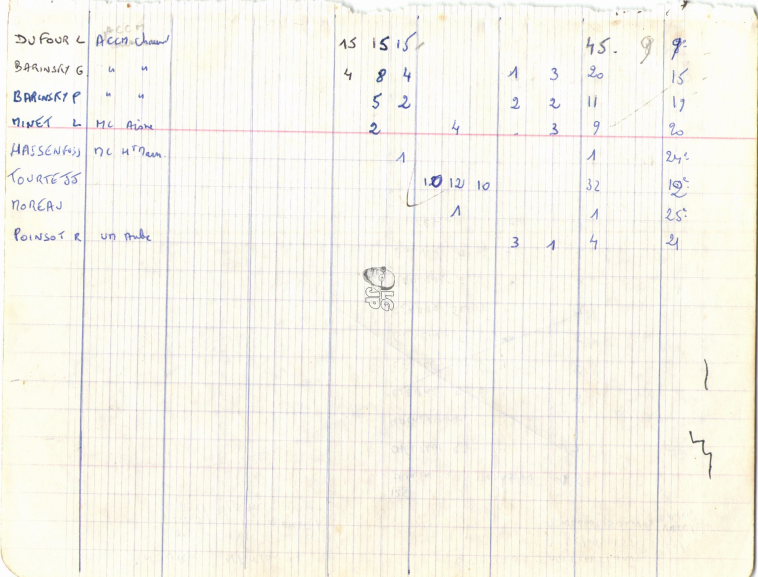 DUFOUR L ACCM Chaum 15 15 15 45. 9 9e
BARINSKY G " " 4 8 4 1 3 20 15
BARINSKY P " " 5 2 2 2 11 19
MINET L MC Aisne 2 4 . 3 9 20
HASSENFOSS MC Hte Marn. 1 1 24e
TOURTE JJ 10 12 10 32 12e
MOREAU 1 1 25e
POINSOT R UM Aube 3 1 4 21
LG
JP